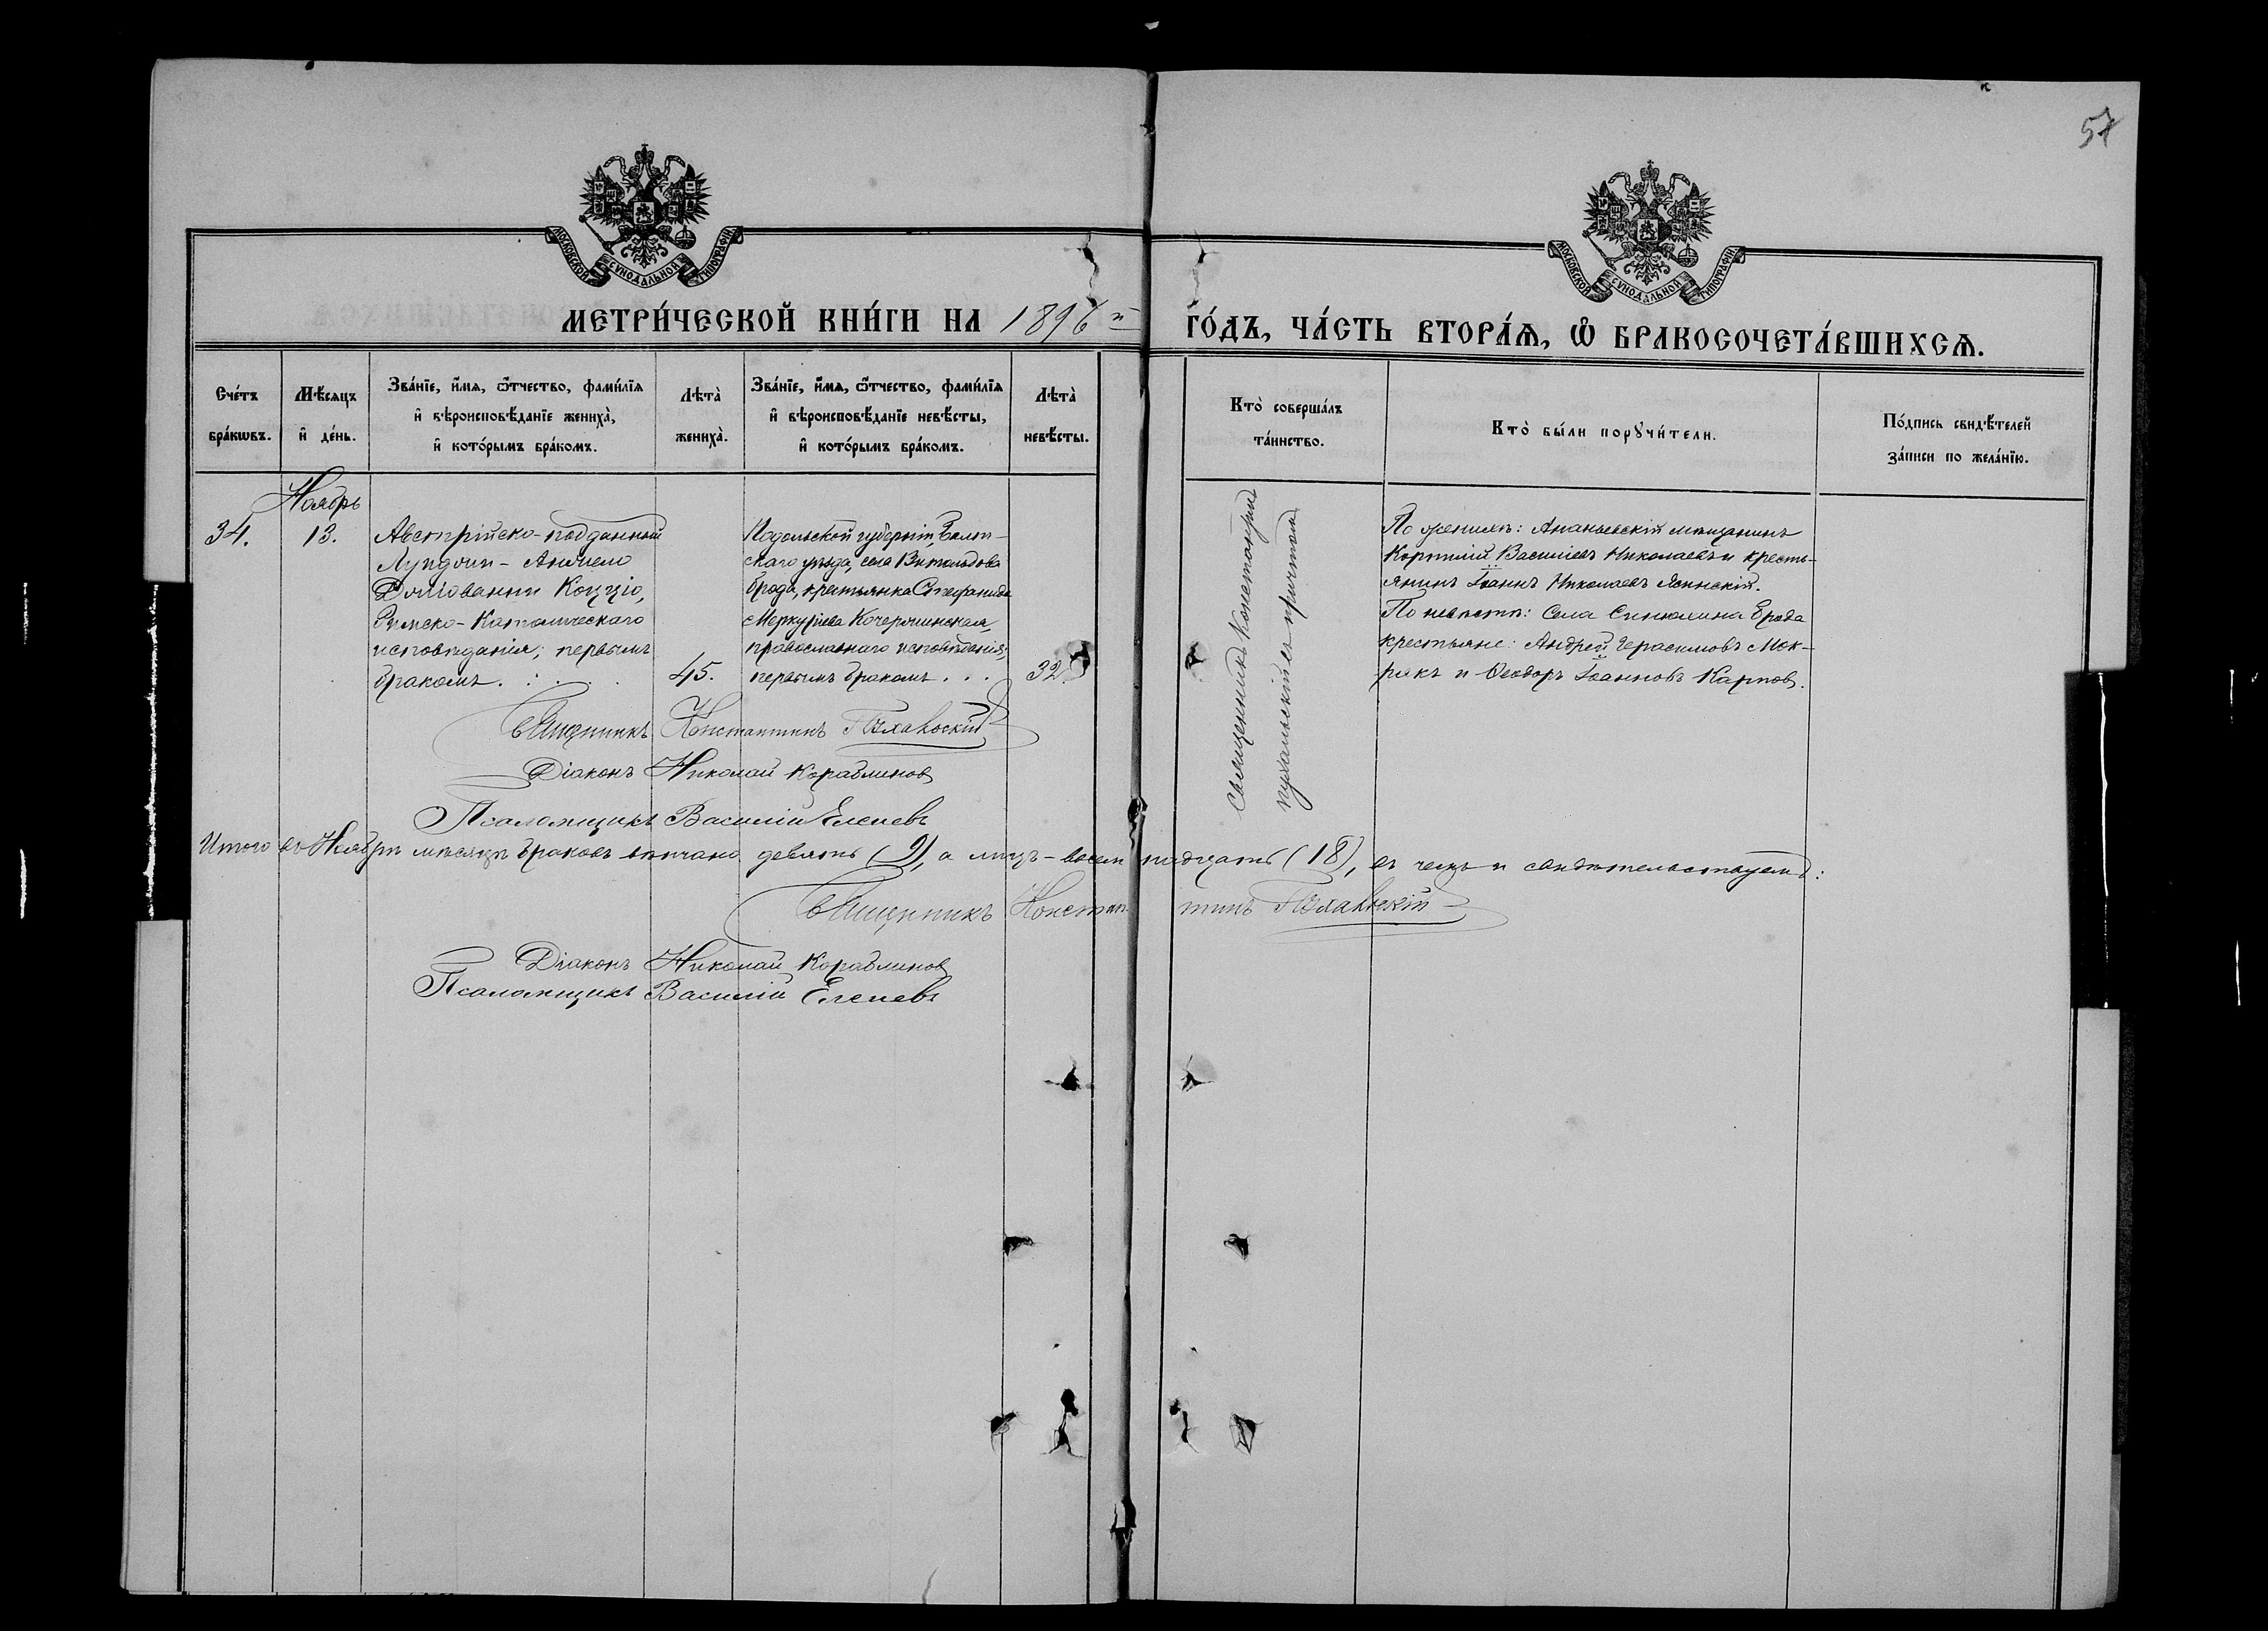 57
МОСКОВСКОЙ СѴНОДАЛЬНОЙ ТИПОГРАФІИ.
МОСКОВСКОЙ СѴНОДАЛЬНОЙ ТИПОГРАФІИ.
МЕТРИ́ЧЕСКОЙ КНИ́ГИ НА 1896й ГО́ДЪ, ЧА́СТЬ ВТОРА́Ѧ, Ѿ БРАКОСОЧЕТА́ВШИХСѦ.
Сче́тъ
бра́кѡвъ.
Мѣ́сѧцъ
и҆ де́нь.
Зва́нїе, и҆́мѧ, ѻ҆́тчество, фами́лїѧ
и҆ вѣроисповѣ́данїе жениха̀,
и҆ кото́рымъ бра́комъ.
Лѣта̀
жениха̀.
Зва́нїе, и҆́мѧ, ѻ҆́тчество, фами́лїѧ
и҆ вѣроисповѣ́данїе невѣ́сты,
и҆ кото́рымъ бра́комъ.
Лѣта̀
невѣ́сты.
Кто̀ соверша́лъ
та́инство.
Кто̀ бы́ли порꙋчи́тели.
По́дпись свидѣ́телей
за́писи по жела́нїю.
Ноябрь
34.
13.
Австрійско-подданный
Анчело
Джіованни Коцціо,
Римско-Католическаго
исповѣданія; первымъ
бракомъ.
45.
Подольской губерніи, Балт-
скаго уѣзда, села Витольдова
брода, крестьянка Стефанида
Меркуріева Кочерчинская,
православнаго исповѣданія;
первымъ бракомъ...
32.
Священникъ Константинъ
съ причтомъ
По женихѣ: Ананьевскій мѣщанинъ
Корнилій Василіевъ Николаевъ и кресть-
янинъ Іоаннъ Николаевъ Яснскій.
По невѣстѣ: Села Синюхина Брода
крестьяне: Андрей Герасимовъ Мок-
рякъ и Ѳеодоръ Іоанновъ Карповъ.
Священникъ Константинъ
Діаконъ Николай Кораблиновъ
Псаломщикъ Василій Еленевъ
Итого въ Ноябрѣ мѣсяцѣ браковъ вѣнчано девять (9), а лицъ-восемнадцать (18), въ чемъ и свидѣтельствуемъ:
Священникъ Константинъ
Діаконъ Николай Кораблиновъ
Псаломщикъ Василій Еленевъ